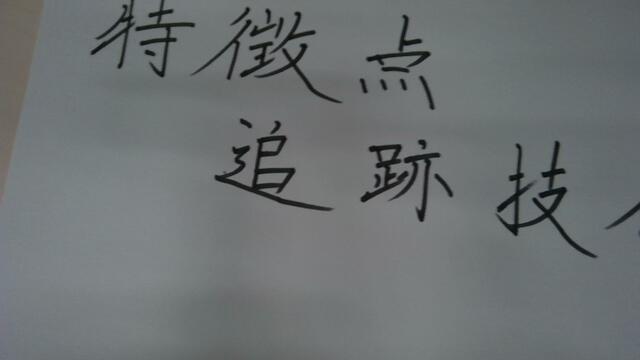 特徴点
追跡技